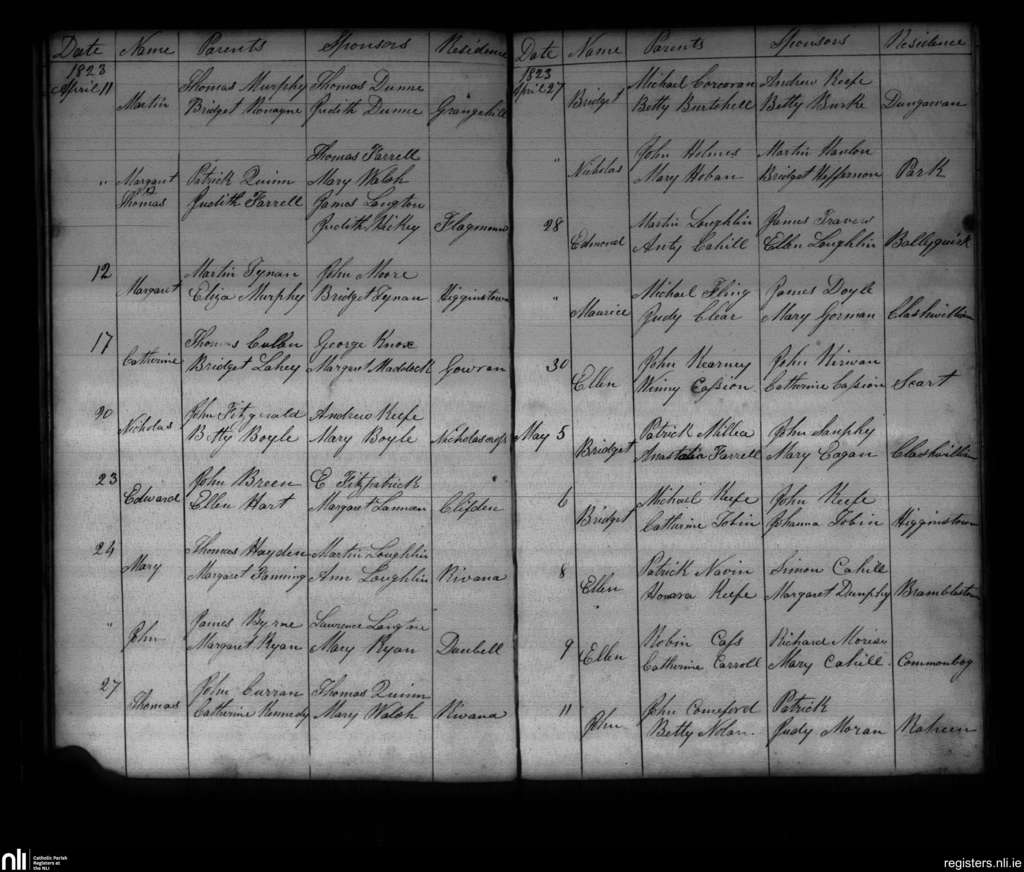 Date Name Parents Sponsors Residence
1823
April 11 Thomas Murphy Thomas Dunne
Martin Bridget Monagne Judith Dunne Grangehill
Thomas Farrell
" Margaret Patrick Quinn Mary Walsh
&
Thomas Judith Farrell James Langton
Judith Hickey Flagmount
12 Martin Tynan John Moore
Margaret Eliza Murphy Bridget Tynan Higginstown
17 Thomas Cullen George Knox
Catherine Bridget Lahey Margaret Maddock Gowran
20 John Fitzgerald Andrew Keefe
Nicholas Betty Boyle Mary Boyle
23 John Breen E Fitzpatrick
Edward Ellen Hart Margaret Lannan Clifden
24 Thomas Hayden Martin Loughlin
Mary Margaret Fanning Ann Loughlin Rivana
" James Byrne Lawrence
John Margaret Ryan Mary Ryan Danbell
27 John Curran Thomas Quinn
Thomas Catherine Kennedy Mary Walsh Rivana
Date Name Parents Sponsors Residence
1823
April 27 Michael Corcoran Andrew Keefe
Bridget Betty Burtchell Betty Burke Dungarvan
" John Holmes Martin Hanlon
Nicholas Mary Hoban Bridget Heffernon Park
28 Martin Loughlin James Travers
Edmond Anty Cahill Ellen Loughlin Ballyquirk
" Michael Fling James Doyle
Maurice Judy Clear Mary Gorman Clashwilliam
30 John Kearney John Kirwan
Ellen Winny Cassion Catherine Cassion Scart
May 5 Patrick Millea John Dunphy
Bridget Anastatia Farrell Mary Eagan Clashwilliam
6 Michael Keefe John Keefe
Bridget Catherine Tobin Johanna Tobin Higginstown
8 Patrick Navin Simon Cahill
Ellen Honora Keefe Margaret Dunphy Bramblestown
9 Robin Cass Richard
Ellen Catherine Carroll Mary Cahill Commonbog
11 John Comeford Patrick
John Betty Nolan Judy Moran Raheen
nli Catholic Parish
Registers at
the NLI
registers.nli.ie